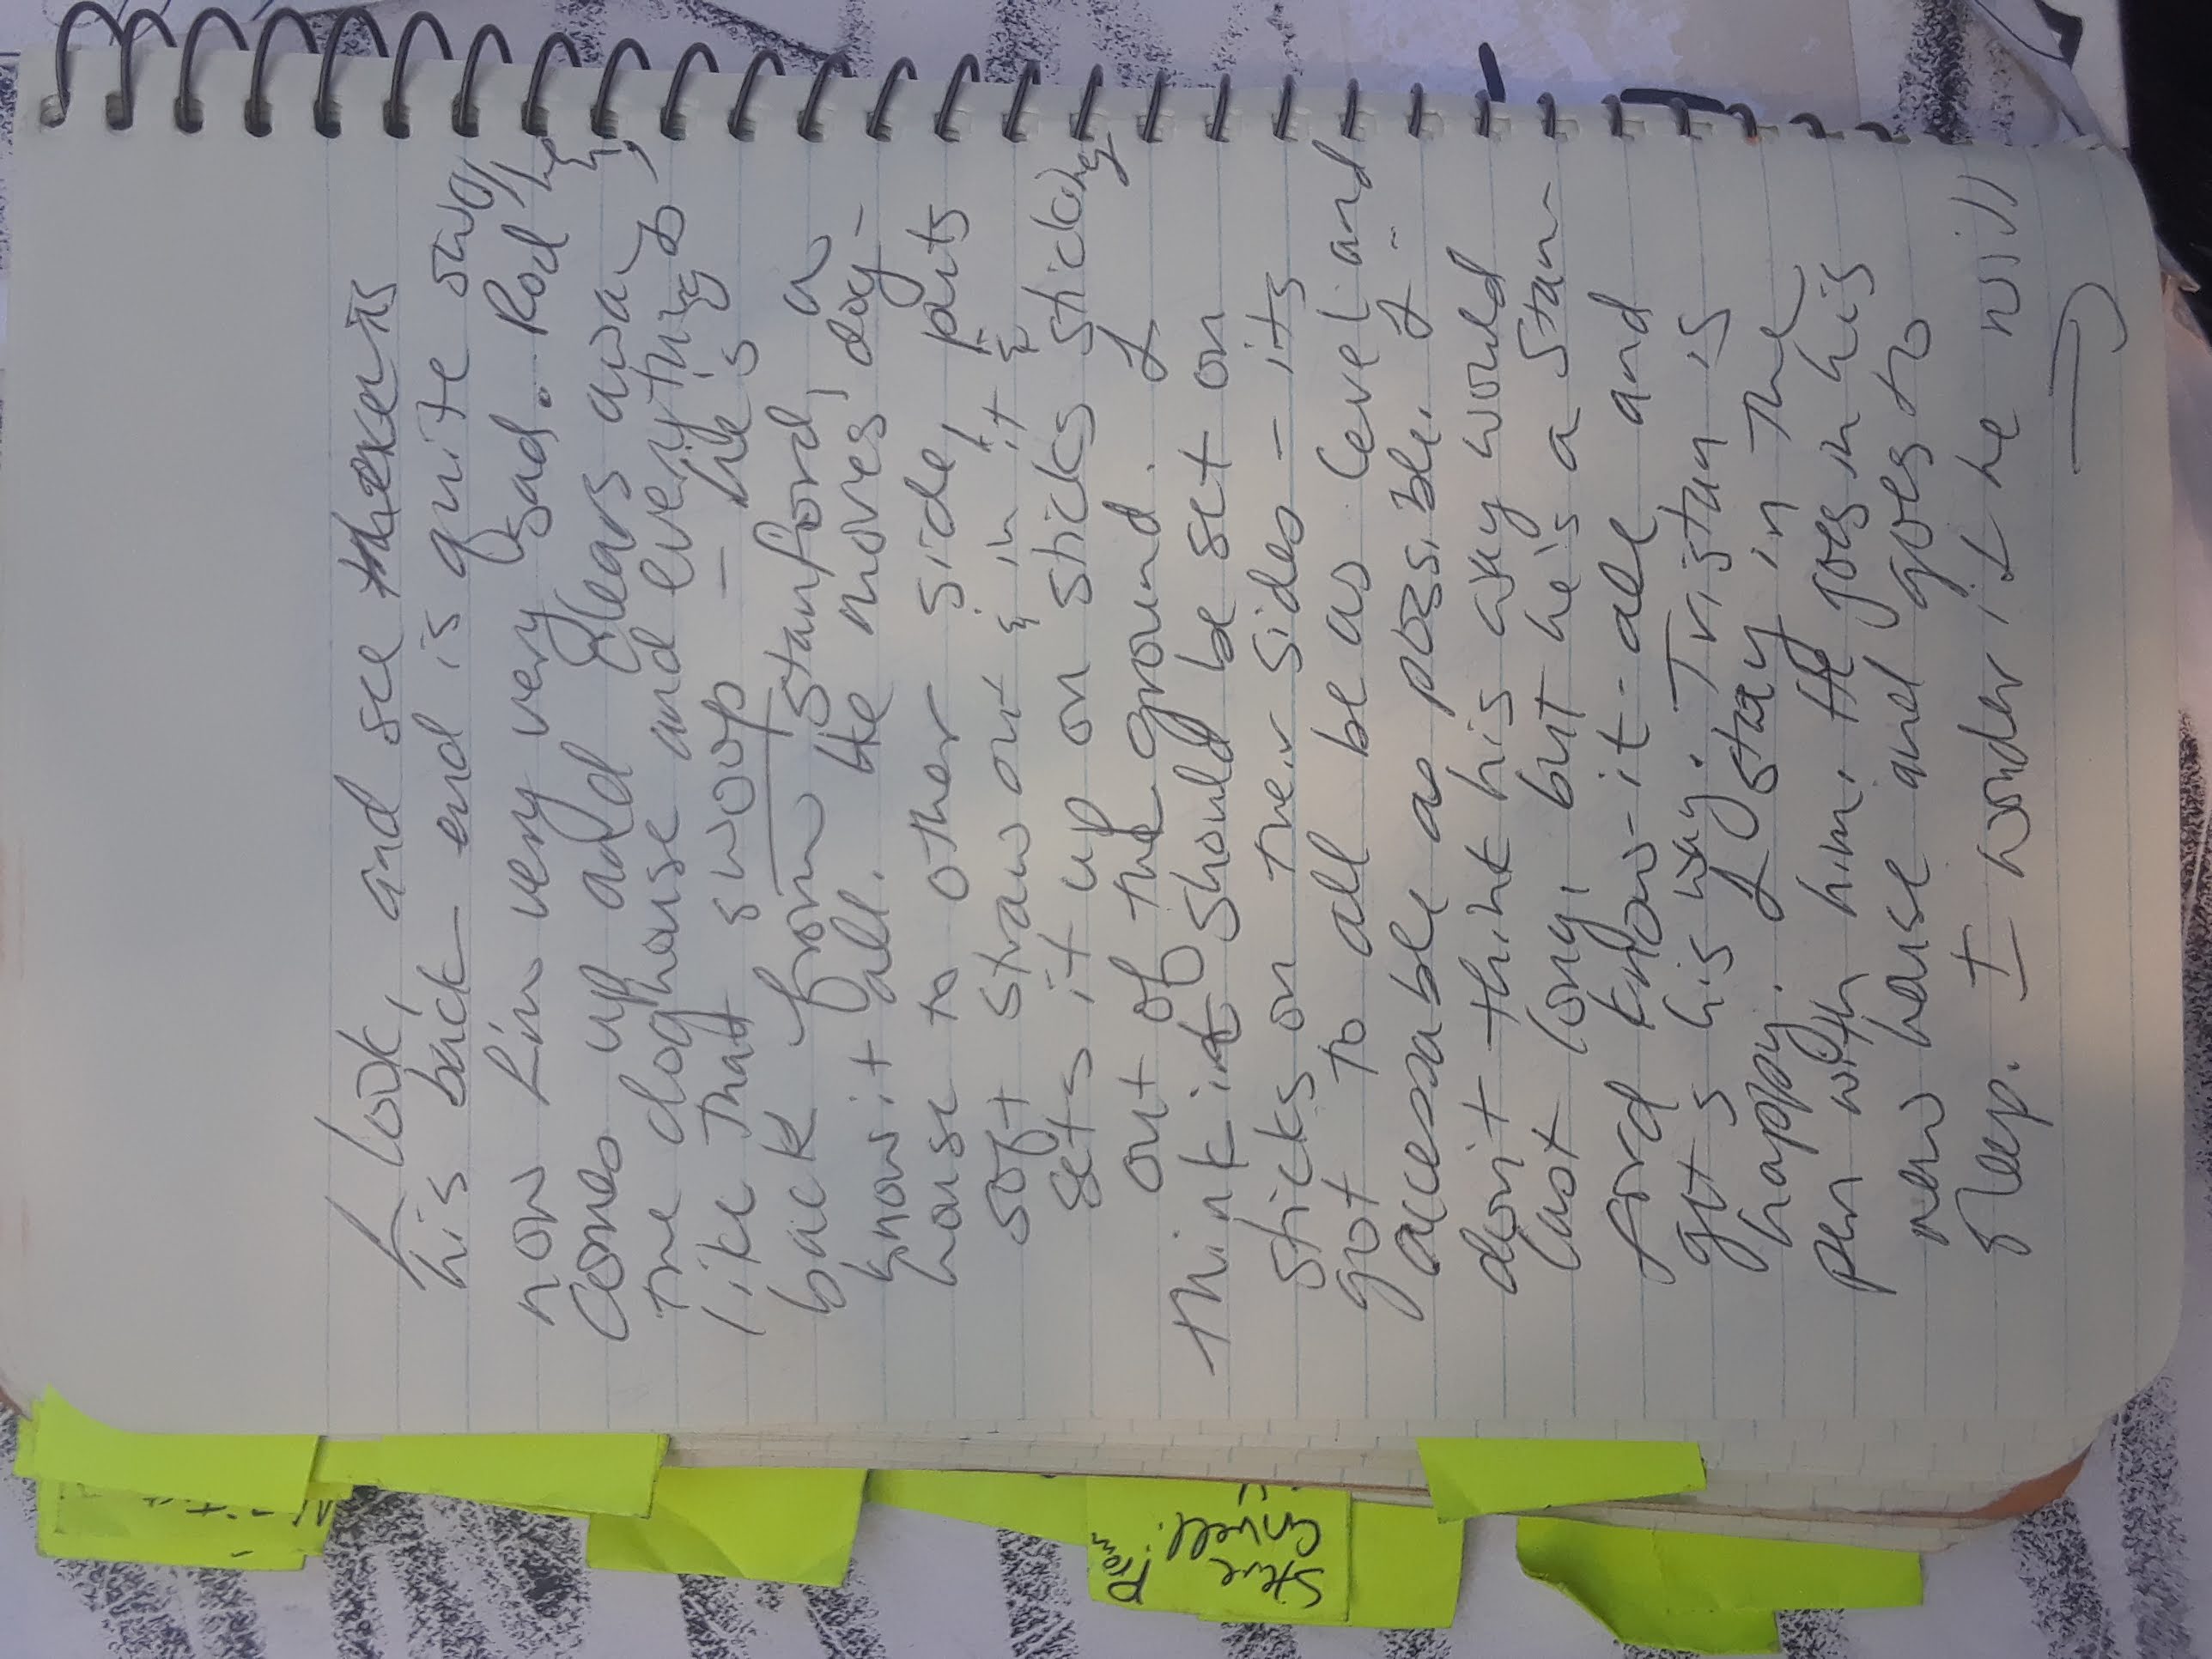 Look, and see there is
his back end is quite
now Lin very very sad. Rod he
comes up and clears away
the doghouse and everything
like that swoop – he's
back from Stanford, a
know it all. He moves dog-
house to other side, puts
soft straw out & in it &
sets it up on sticks sticking
out of the ground. I
think it should be set on
sticks on the sides – its
got to all be as level and
accessable as possible. I
don't think his way would
last long, but he's a Stan-
ford know-it-all and
gets his way. Tristan is
happy. I stay in the
pen with him. He goes in his
new house and goes to
sleep. I wonder if he will
Steve
Covell
From